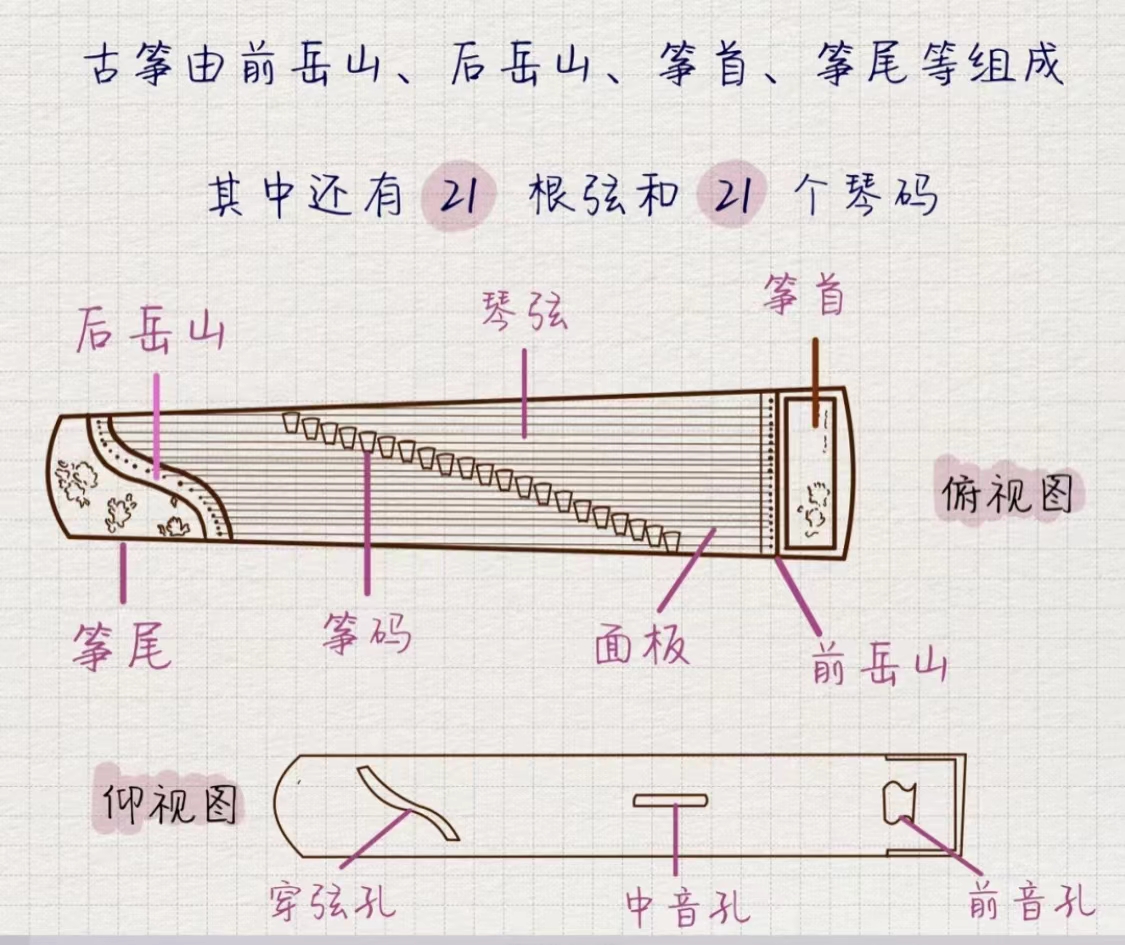 古筝由前岳山、后岳山、筝首、筝尾等组成
其中还有 21 根弦和 21 个琴码
筝首
琴弦
后岳山
俯视图
筝尾
筝码
面板
前岳山
仰视图
穿弦孔
中音孔
前音孔